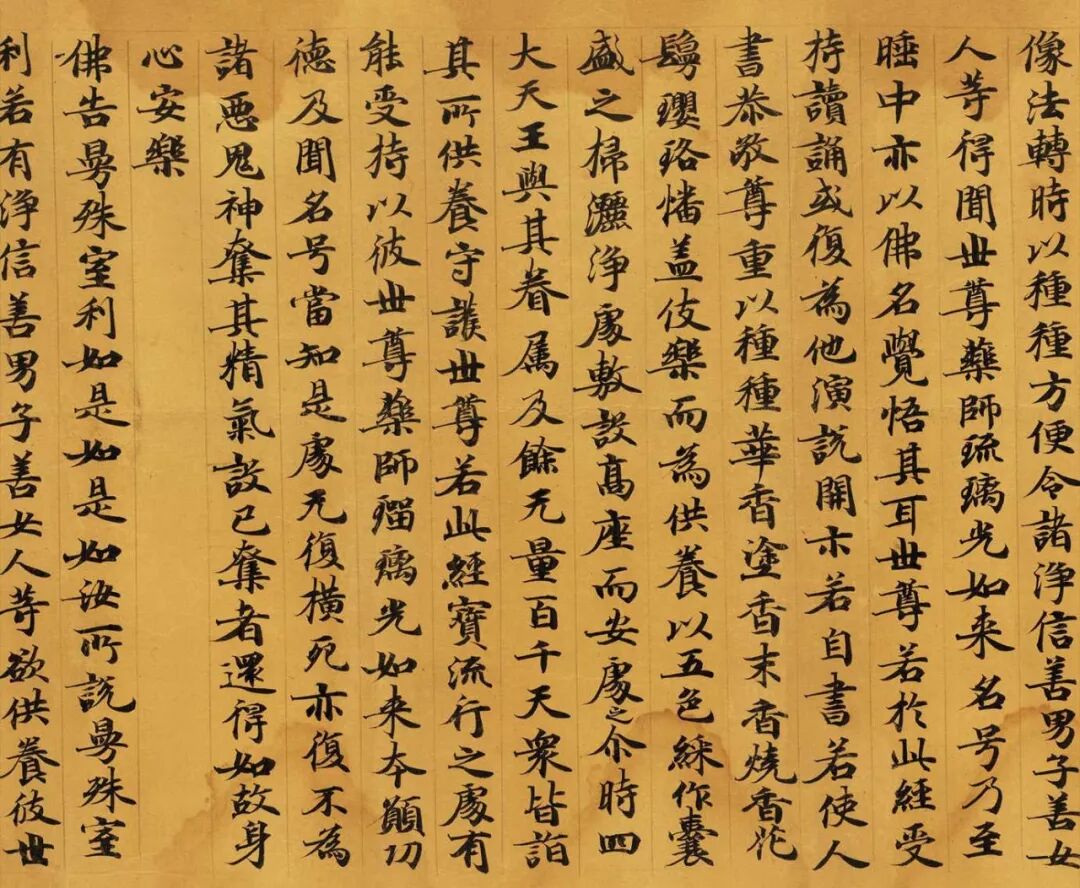 像法轉時以種種方便令諸淨信善男子善女
人等得聞世尊藥師琉璃光如来名号乃至
睡中亦以佛名覺悟其耳世尊若於此經受
持讀誦或復為他演說開示若自書若使人
書恭敬尊重以種種華香塗香末香燒香花
鬘瓔珞幡盖伎樂而為供養以五色綵作囊
盛之掃灑淨處敷設高座而安處之尒時四
大天王與其眷属及餘无量百千天衆皆詣
其所供養守護世尊若此經寶流行之處有
能受持以彼世尊藥師瑠璃光如来本願功
德及聞名号當知是處无復横死亦復不為
諸惡鬼神奪其精氣設已奪者還得如故身
心安樂
佛告曼殊室利如是如是如汝所說曼殊室
利若有淨信善男子善女人等欲供養彼世